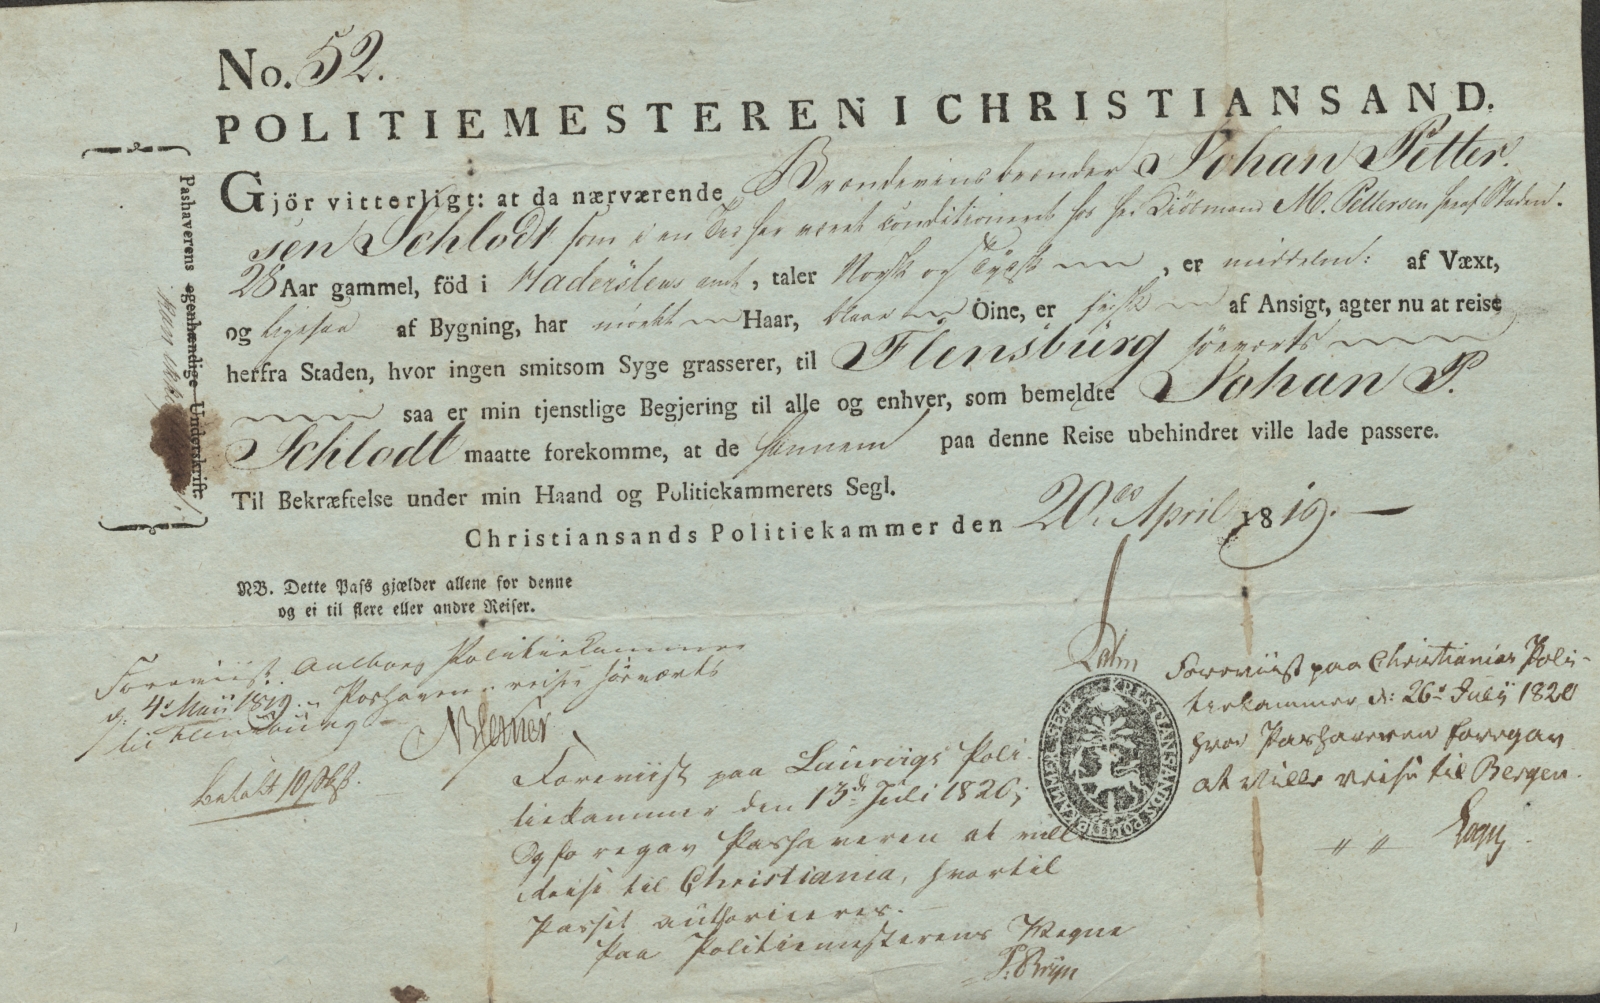 No. 52.
POLITIEMESTEREN I CHRISTIANSAND.
Gjör vitterligt: at da nærværende Brændevinsbrænder Johan Petter
sen Schlodt som i en Tid har været conditioneret hos Hr Kiöbmand M. Pettersen heraf Staden.
28 Aar gammel, föd i Haderslevs amt, taler Norsk og Tydsk, er middelm: af Væxt,
og ligesaa af Bygning, har mörkt Haar, blaae Öine, er frisk af Ansigt, agter nu at reise
herfra Staden, hvor ingen smitsom Syge grasserer, til Flensburg söeværts
saa er min tjenstlige Begjering til alle og enhver, som bemeldte Johan P.
Schlodt maatte forekomme, at de hannem paa denne Reise ubehindret ville lade passere.
Til Bekræftelse under min Haand og Politiekammerets Segl.
Christiansands Politiekammer den 20de April 1819.
Pashaverens egenhændige Underskrift.
NB. Dette Pass gjælder allene for denne
og ei til flere eller andre Reiser.
Foreviist Aalborg Politiekammer
d: 4de Maii 1819. Pashaveren reiser söeværts
til Flensburg
betalt 10
Foreviist paa Laurvigs Poli-
tiekammer den 13de Juli 1820;
Og foregav Pashaveren at ville
reise til Christiania, hvortil
Passet authoriceres.
Paa Politiemesterens Vegne
Foreviist paa Christianias Poli-
tiekammer d: 26de July 1820
hvor Pashaveren foregav
at ville reise til Bergen.
KRISTIANSANDS POLITIEKAMMER SEGL